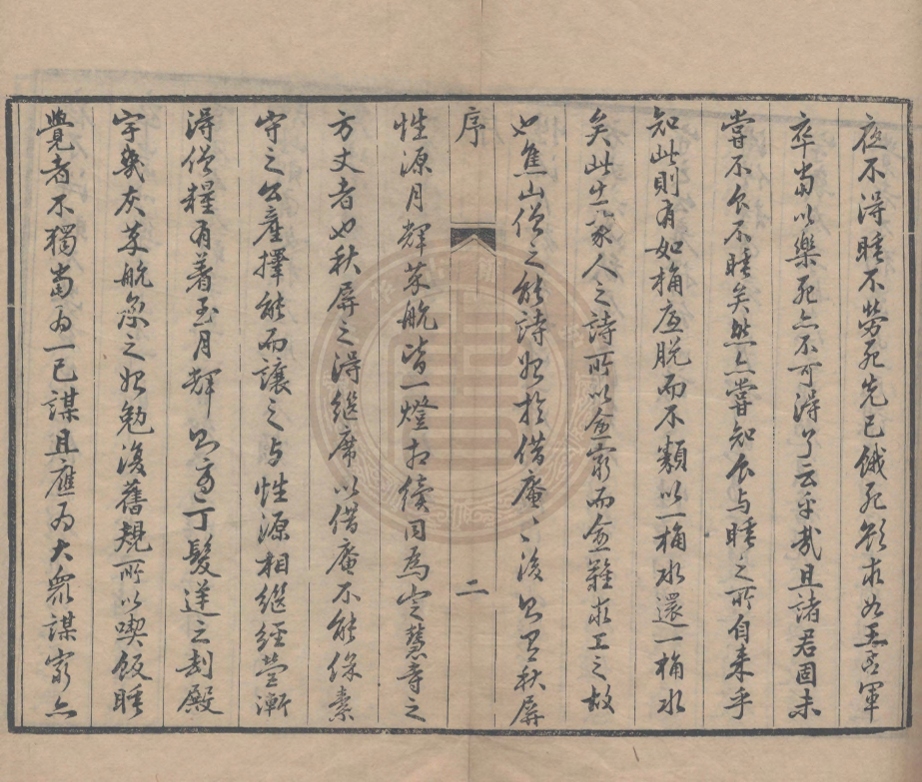 夜不得睡不勞死先已餓死欲求如王右軍
卒當以樂死亦不可得了云乎哉且諸君固未
嘗不食不睡矣然亦嘗知食与睡之所自来乎
知此則有如桶底脱而不類以一桶水還一桶水
矣此生公家人之詩所以愈窮而愈難求工之故
也焦山僧之能詩始於借庵〻後則有秋屏
序
二
性源月輝芥航皆一燈相續同為定慧寺之
方丈者也秋屏之得繼席以借庵不能綜素
守之公產擇能而讓之与性源相繼經營漸
得僧糧有著至月輝則方丁髮逆之刦殿
宇幾灰芥航急之始勉復舊規所以喫飯睡
覺者不獨當為一己謀且應為大眾謀窮亦